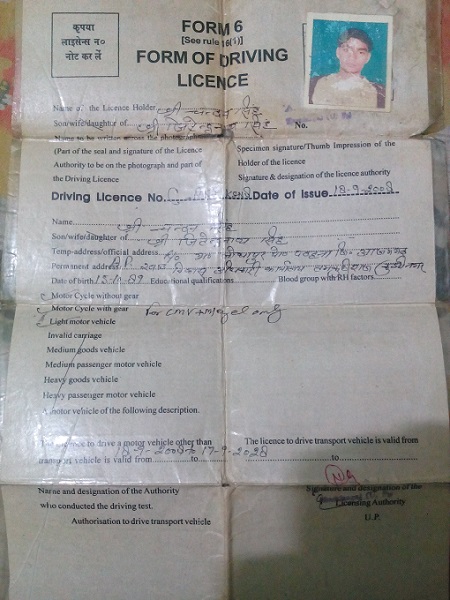 कृपया
लाइसेन्स न०
नोट कर लें
FORM 6
[See rule 16(1)]
FORM OF DRIVING
LICENCE
Name of the Licence Holder श्री चन्दन सिंह
Son/wife/daughter of श्री जितेन्द्र सिंह No.
Name to be written across the photograph
(Part of the seal and signature of the Licence
Authority to be on the photograph and part of
the Driving Licence
Specimen signature/Thumb Impression of the
Holder of the licence
Signature & designation of the licence authority
Driving Licence No. Date of Issue 18-9-2008
Name श्री चन्दन सिंह
Son/wife/daughter of श्री सिंह
Temp-address/official address
Permanent address कार्यालय
Date of birth Educational qualifications Blood group with RH factors.
Motor Cycle without gear
Motor Cycle with gear
Light motor vehicle
for LMV+M/cycle only
Invalid carriage
Medium goods vehicle
Medium passenger motor vehicle
Heavy goods vehicle
Heavy passenger motor vehicle
A motor vehicle of the following description.
The licence to drive a motor vehicle other than
transport vehicle is valid from 18-9-2008 to 17-9-2028
The licence to drive transport vehicle is valid from
to
Name and designation of the Authority
who conducted the driving test.
Authorisation to drive transport vehicle
Signature and designation of
Licensing Authority
U.P.